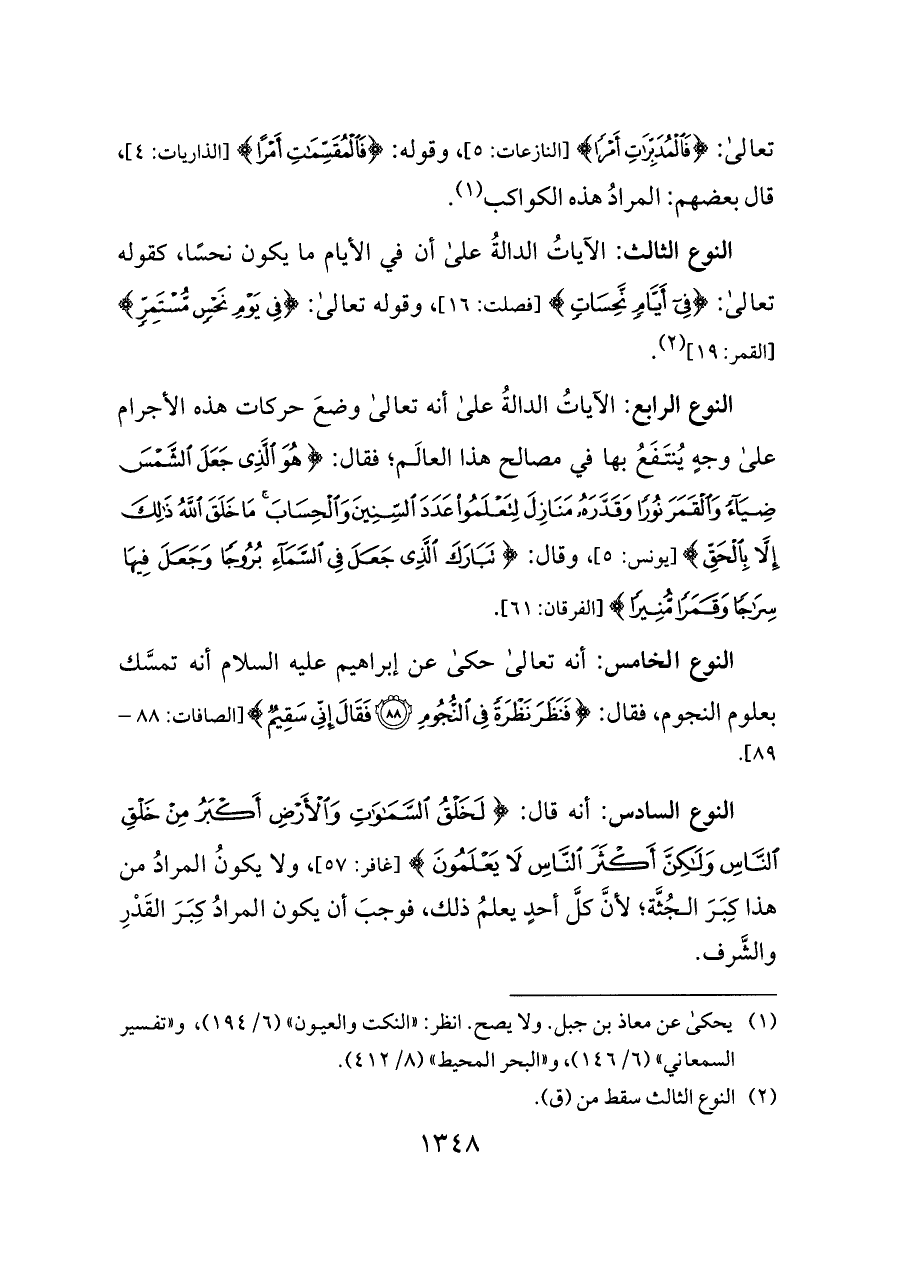 تعالىٰ: ﴿فَٱلْمُدَبِّرَٰتِ أَمْرًا﴾ [النازعات: ٥]، وقوله: ﴿فَٱلْمُقَسِّمَٰتِ أَمْرًا﴾ [الذاريات: ٤]،
قال بعضهم: المرادُ هذه الكواكب(١).
النوع الثالث: الآياتُ الدالةُ علىٰ أن في الأيام ما يكون نحسًا، كقوله
تعالىٰ: ﴿فِىٓ أَيَّامٍ نَّحِسَاتٍ﴾ [فصلت: ١٦]، وقوله تعالىٰ: ﴿فِى يَوْمِ نَحْسٍ مُّسْتَمِرٍّ﴾
[القمر: ١٩](٢).
النوع الرابع: الآياتُ الدالةُ علىٰ أنه تعالىٰ وضعَ حركات هذه الأجرام
علىٰ وجهٍ يُنتَفَعُ بها في مصالح هذا العالَم؛ فقال: ﴿هُوَ ٱلَّذِى جَعَلَ ٱلشَّمْسَ
ضِيَآءً وَٱلْقَمَرَ نُورًا وَقَدَّرَهُۥ مَنَازِلَ لِتَعْلَمُوا۟ عَدَدَ ٱلسِّنِينَ وَٱلْحِسَابَ ۚ مَا خَلَقَ ٱللَّهُ ذَٰلِكَ
إِلَّا بِٱلْحَقِّ﴾ [يونس: ٥]، وقال: ﴿تَبَارَكَ ٱلَّذِى جَعَلَ فِى ٱلسَّمَآءِ بُرُوجًا وَجَعَلَ فِيهَا
سِرَٰجًا وَقَمَرًا مُّنِيرًا﴾ [الفرقان: ٦١].
النوع الخامس: أنه تعالىٰ حكىٰ عن إبراهيم عليه السلام أنه تمسَّك
بعلوم النجوم، فقال: ﴿فَنَظَرَ نَظْرَةً فِى ٱلنُّجُومِ ۝٨٨ فَقَالَ إِنِّى سَقِيمٌ﴾ [الصافات: ٨٨ –
٨٩].
النوع السادس: أنه قال: ﴿لَخَلْقُ ٱلسَّمَٰوَٰتِ وَٱلْأَرْضِ أَكْبَرُ مِنْ خَلْقِ
ٱلنَّاسِ وَلَٰكِنَّ أَكْثَرَ ٱلنَّاسِ لَا يَعْلَمُونَ﴾ [غافر: ٥٧]، ولا يكونُ المرادُ من
هذا كِبَرَ الـجُثَّة؛ لأنَّ كلَّ أحدٍ يعلمُ ذلك، فوجبَ أن يكون المرادُ كِبَرَ القَدْرِ
والشَّرف.
(١) يحكىٰ عن معاذ بن جبل. ولا يصح. انظر: «النكت والعيون» (٦/ ١٩٤)، و«تفسير
السمعاني» (٦/ ١٤٦)، و«البحر المحيط» (٨/ ٤١٢).
(٢) النوع الثالث سقط من (ق).
١٣٤٨